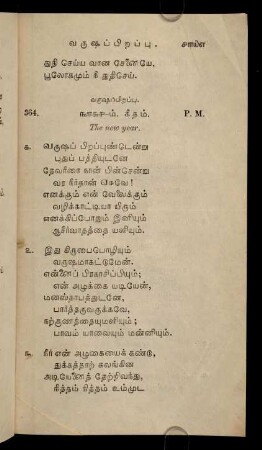 வருஷப்பிறப்பு.
துதி செய்ய வான சேனையே,
பூலோகமும் நீ துதிசெய்.
வருஷப்பிறப்பு.
364. ௩௬௪-ம். கீதம். P. M.
The new year.
௧. வருஷப் பிறப்புண்டென்று
புதுப் பத்தியுடனே
தேவரீரை நான் பின்சென்று
வர நீர்தான் இசுவே!
எனக்கும் என் வேலைக்கும்
வழிக்காட்டியா யிரும்
எனக்கிப்போதும் இனியும்
ஆசீர்வாதத்தை யளியும்.
௨. இது கிருபைபொழியும்
வருஷமாகட்டுமேன்.
என்னைப் பிரகாசிப்பியும்;
என் அழுக்கை யடியேன்,
மனஸ்தாபத்துடனே,
பார்த்தருவருக்கவே,
நற்குணத்தையுமளியும்;
பாவம் யாவையும் மன்னியும்.
௩. நீர் என் அழுகையைக் கண்டு,
துக்கத்தாற் கலங்கின
அடியேனைத் தேற்றிவந்து,
நித்தம் நித்தம் உம்முட